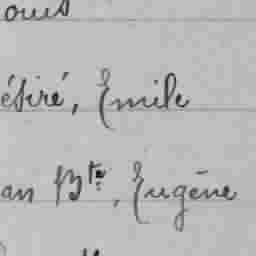 ésiré, Emile
an Bte, Eugène